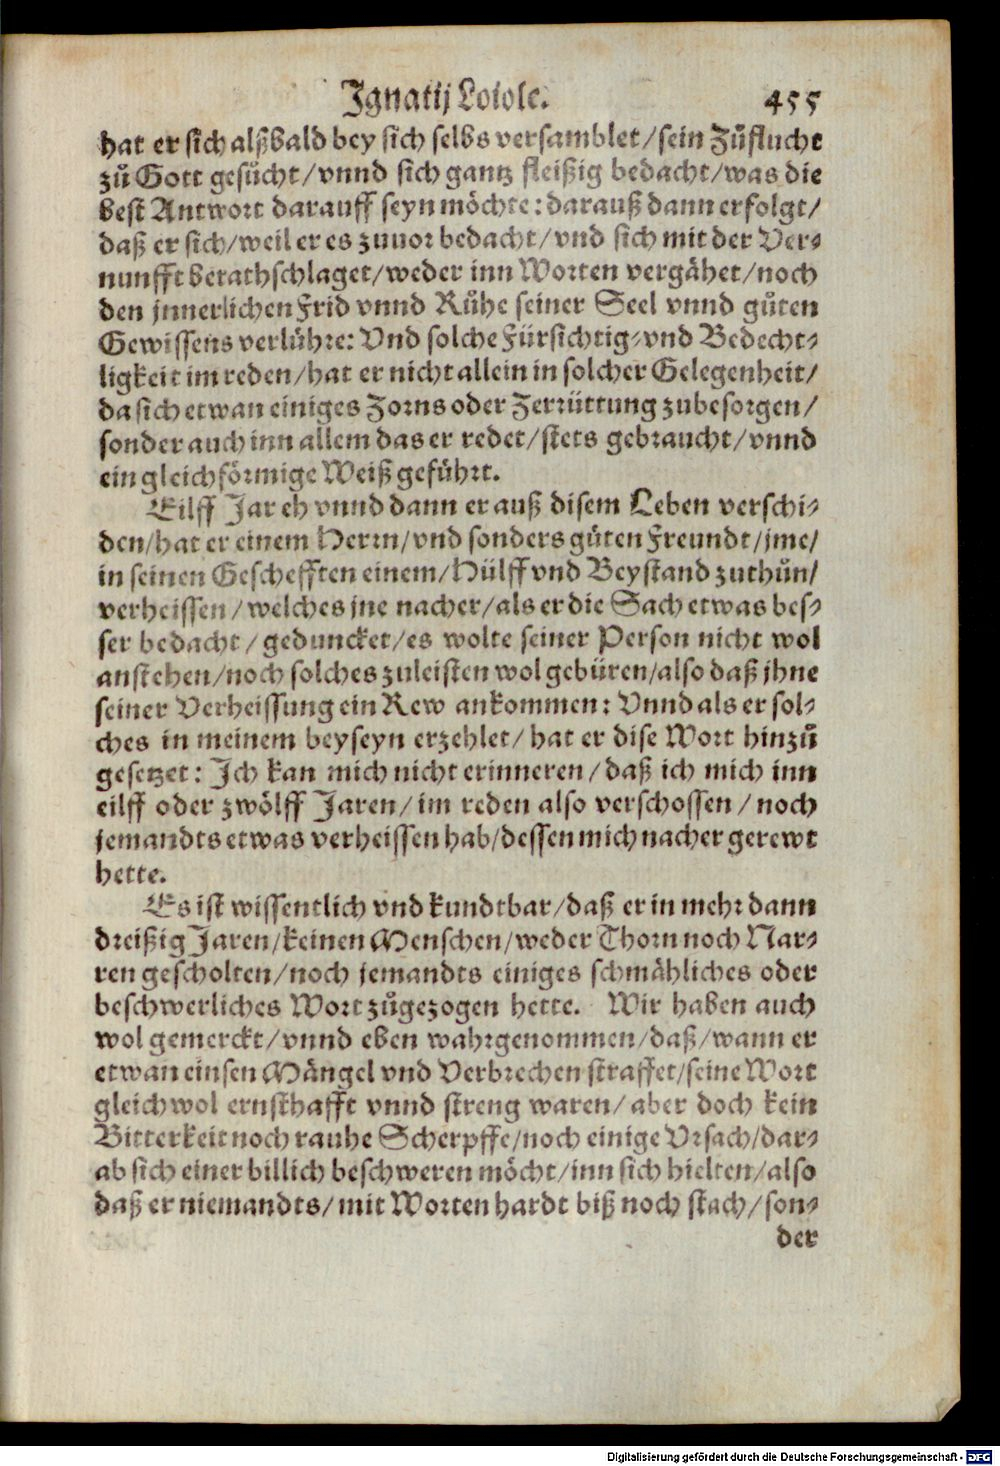 Ignatij Loiole. 455
hat er sich alßbald bey sich selbs versamblet/sein Zůflucht
zů Gott gesůcht/vnnd sich gantz fleißig bedacht/was die
best Antwort darauff seyn möchte: darauß dann erfolgt/
daß er sich/weil er es zuuor bedacht/vnd sich mit der Ver-
nunfft berathschlaget/weder inn Worten vergähet/noch
den jnnerlichen Frid vnnd Růhe seiner Seel vnnd gůten
Gewissens verlühre: Vnd solche Fürsichtig-vnd Bedecht-
ligkeit im reden/hat er nicht allein in solcher Gelegenheit/
da sich etwan einiges Zorns oder Zerrüttung zubesorgen/
sonder auch inn allem das er redet/stets gebraucht/vnnd
ein gleichförmige Weiß geführt.
Eilff Jar eh vnnd dann er auß disem Leben verschi-
den/hat er einem Herrn/vnd sonders gůten Freundt/jme/
in seinen Geschefften einem/Hülff vnd Beystand zuthůn/
verheissen/welches jne nacher/als er die Sach etwas bes-
ser bedacht/geduncket/es wolte seiner Person nicht wol
anstehen/noch solches zuleisten wol gebüren/also daß jhne
seiner Verheissung ein Rew ankommen: Vnnd als er sol-
ches in meinem beyseyn erzehlet/hat er dise Wort hinzů
gesetzet: Ich kan mich nicht erinneren/daß ich mich inn
eilff oder zwölff Jaren/im reden also verschossen/noch
jemandts etwas verheissen hab/dessen mich nacher gerewt
hette.
Es ist wissentlich vnd kundtbar/daß er in mehr dann
dreißig Jaren/keinen Menschen/weder Thorn noch Nar-
ren gescholten/noch jemandts einiges schmähliches oder
beschwerliches Wort zůgezogen hette. Wir haben auch
wol gemerckt/vnnd eben wahrgenommen/daß/wann er
etwan einsen Mängel vnd Verbrechen straffet/seine Wort
gleichwol ernsthafft vnnd streng waren/aber doch kein
Bitterkeit noch rauhe Scherpffe/noch einige Vrsach/dar-
ab sich einer billich beschweren möcht/inn sich hielten/also
daß er niemandts/mit Worten hardt biß noch stach/son-
der
Digitalisierung gefördert durch die Deutsche Forschungsgemeinschaft - DFG